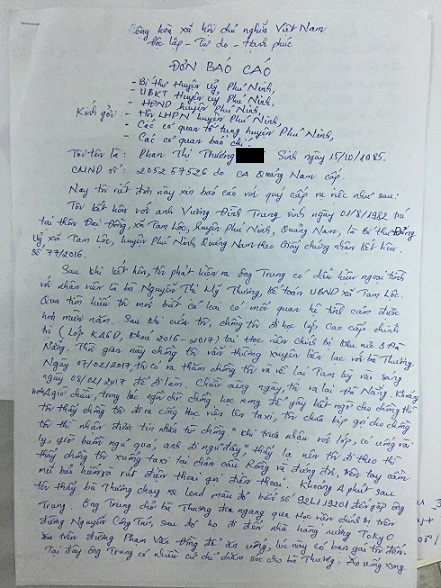 Cộng hòa xã hội chủ nghĩa Việt Nam
Độc lập - Tự do - Hạnh phúc
ĐƠN BÁO CÁO
- Bí thư Huyện ủy Phú Ninh,
- UBKT Huyện ủy Phú Ninh,
- HĐND huyện Phú Ninh,
Kính gởi: - Hội LHPN huyện Phú Ninh,
- Các cơ quan tố tụng huyện Phú Ninh,
- Các cơ quan báo chí.
Tôi tên là: Phan Thị Thương Sinh ngày 15/10/1985.
CMND số: 205257526 do CA Quảng Nam cấp.
Nay tôi viết đơn này xin báo cáo với quý cấp vụ việc như sau:
Tôi kết hôn với anh Vương Đình Trung sinh ngày 01/8/1982 trú
tại thôn Đại Đồng, xã Tam Lộc, huyện Phú Ninh, Quảng Nam, là Bí thư Đảng
ủy xã Tam Lộc, huyện Phú Ninh, Quảng Nam theo Giấy chứng nhận kết hôn
số 77/2016.
Sau khi kết hôn, tôi phát hiện ra ông Trung có dấu hiệu ngoại tình
với nhân viên là bà Nguyễn Thị Mỹ Thương, kế toán UBND xã Tam Lộc.
Qua tìm hiểu thì mới biết cả hai có mối quan hệ tình cảm được
hơn mười năm. Sau khi cưới tôi, chồng tôi đi học lớp Cao cấp chính
trị (Lớp K26D, khóa 2016-2017) tại Học viện chính trị khu vực 3 Đà
Nẵng. Thời gian này chồng tôi vẫn thường xuyên liên lạc với bà Thương.
Ngày 07/02/2017 tôi có ra thăm chồng tôi và về lại Tam Kỳ vào sáng
ngày 08/02/2017 để đi làm. Chiều cùng ngày, tôi ra lại Đà Nẵng. Khoảng
giờ chiều, trong lúc ngồi chờ chồng học xong để gây bất ngờ cho chồng thì
tôi thấy chồng tôi đi ra cổng học viện lên taxi, tôi chưa kịp gọi cho chồng
tôi thì nhận được tin nhắn từ chồng "khi trưa nhậu với lớp, có uống vài
ly, giờ buồn ngủ quá, anh đi ngủ đây", thấy lạ nên tôi đi theo thì
thấy chồng tôi xuống taxi tại chân cầu Rồng và đứng đợi, trên tay cầm
mũ bảo hiểm và rút điện thoại gọi điện thoại. Khoảng 4 phút sau
tôi thấy bà Thương chạy xe Lead màu đỏ biển số 92L1 19201 đến gặp ông
Trung. Ông Trung chở bà Thương đưa ngang qua Học viện chính trị trên
đường Nguyễn Công Trứ, sau đó họ đi đến nhà hàng nướng TOKYO
trên đường Phạm Văn Đồng để ăn uống, lúc này có bạn gái tôi đến.
Tại đây ông Trung có nhiều cử chỉ chăm sóc cho bà Thương. Ăn uống xong